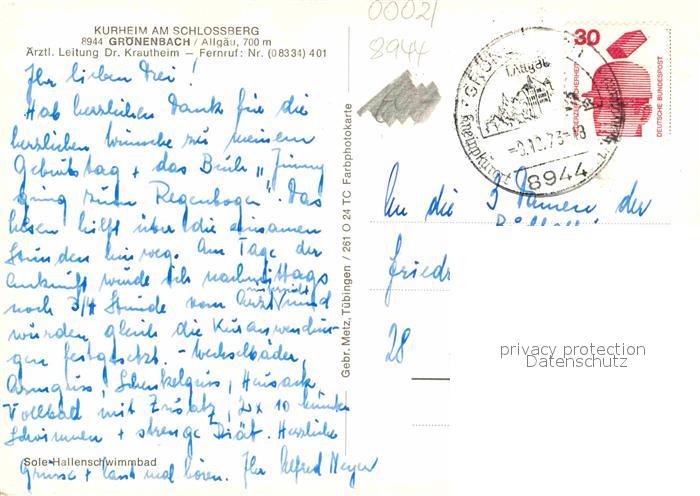 KURHEIM AM SCHLOSSBERG
8944 GRÖNENBACH / Allgäu, 700 m
Ärztl. Leitung Dr. Krautheim – Fernruf: Nr. (08334) 401
Ihr lieben Drei!
Hab herzlichen Dank für die
herzlichen Wünsche zu meinem
Geburtstag + das Buch "Jimmy
ging zum Regenbogen". Das
lesen hilft über die einsamen
Stunden hinweg. Am Tage der
Ankunft wurde ich nachmittags
noch 3/4 Stunde vom Arzt untersucht und
wurden gleich die Kuranwendun-
gen festgesetzt. – Wechselbäder,
Armguss, Schenkelguss, Heusack
Vollbad mit Zusatz, 2 x 10 Minuten
Schwimmen + strenge Diät. Herzliche
Grüsse + lasst mal hören. Ihr Alfred Meyer
Sole-Hallenschwimmbad
Gebr. Metz, Tübingen / 261 O 24 TC Farbphotokarte
00021
8944
Allgäu
73-18
8944
30
DEUTSCHE BUNDESPOST
An die 3 Damen der
Friedr
28
privacy protection
Datenschutz